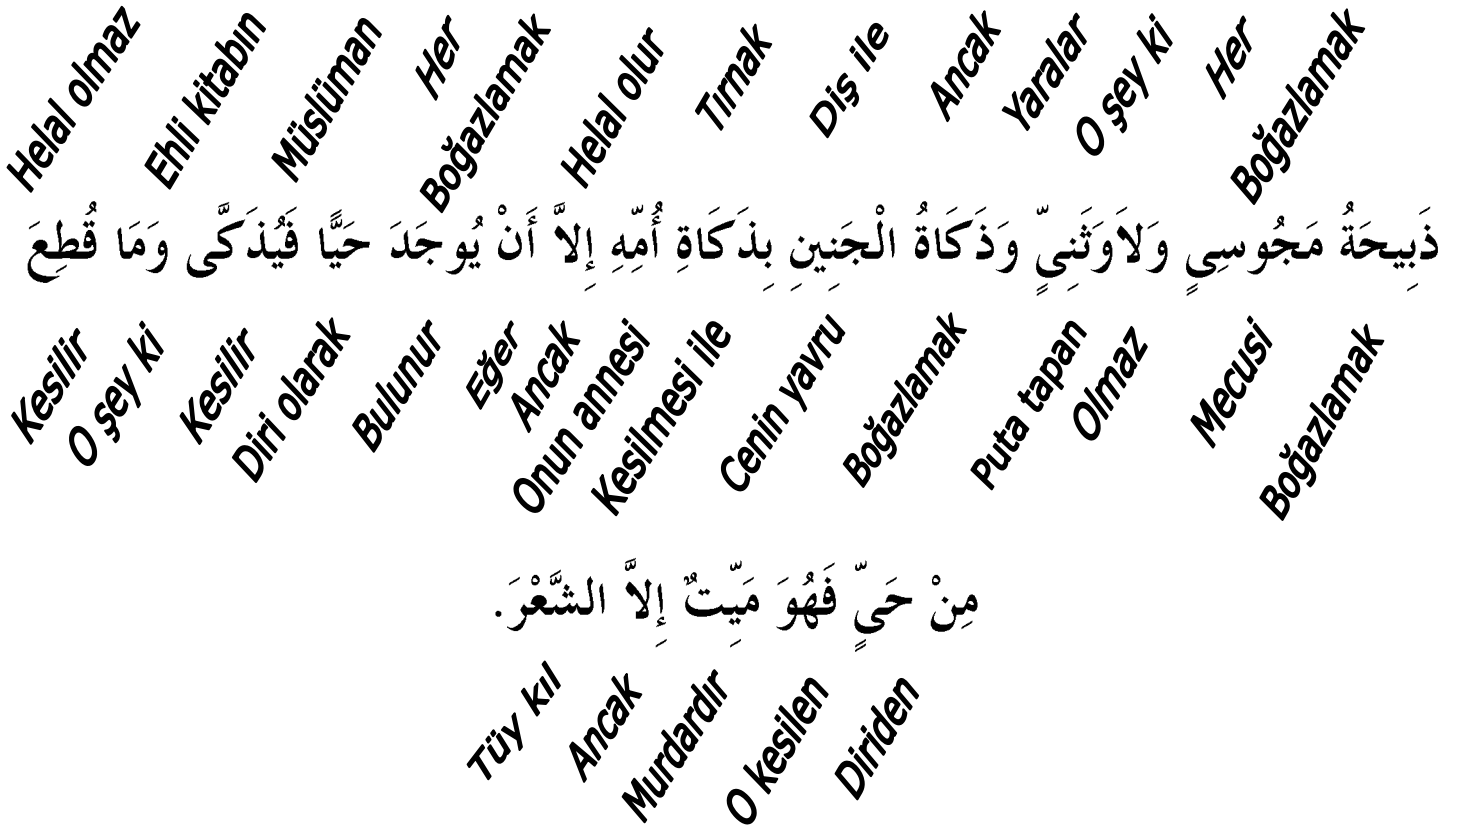 Helal olmaz Ehli kitabın Müslüman Her Boğazlamak Helal olur Tırnak Diş ile Ancak Yaralar O şey ki Her Boğazlamak
ذَبِيحَةُ مَجُوسِيٍ وَلاَوَثَنِيٍّ وَذَكَاةُ الْجَنِينِ بِذَكَاةِ أُمِّهِ إِلاَّ أَنْ يُوجَدَ حَيًّا فَيُذَكَّى وَمَا قُطِعَ
Kesilir O şey ki Kesilir Diri olarak Bulunur Eğer Ancak Onun annesi Kesilmesi ile Cenin yavru Boğazlamak Puta tapan Olmaz Mecusi Boğazlamak
مِنْ حَيٍّ فَهُوَ مَيِّتٌ إِلاَّ الشَّعْرَ.
Tüy kıl Ancak Murdardır O kesilen Diriden